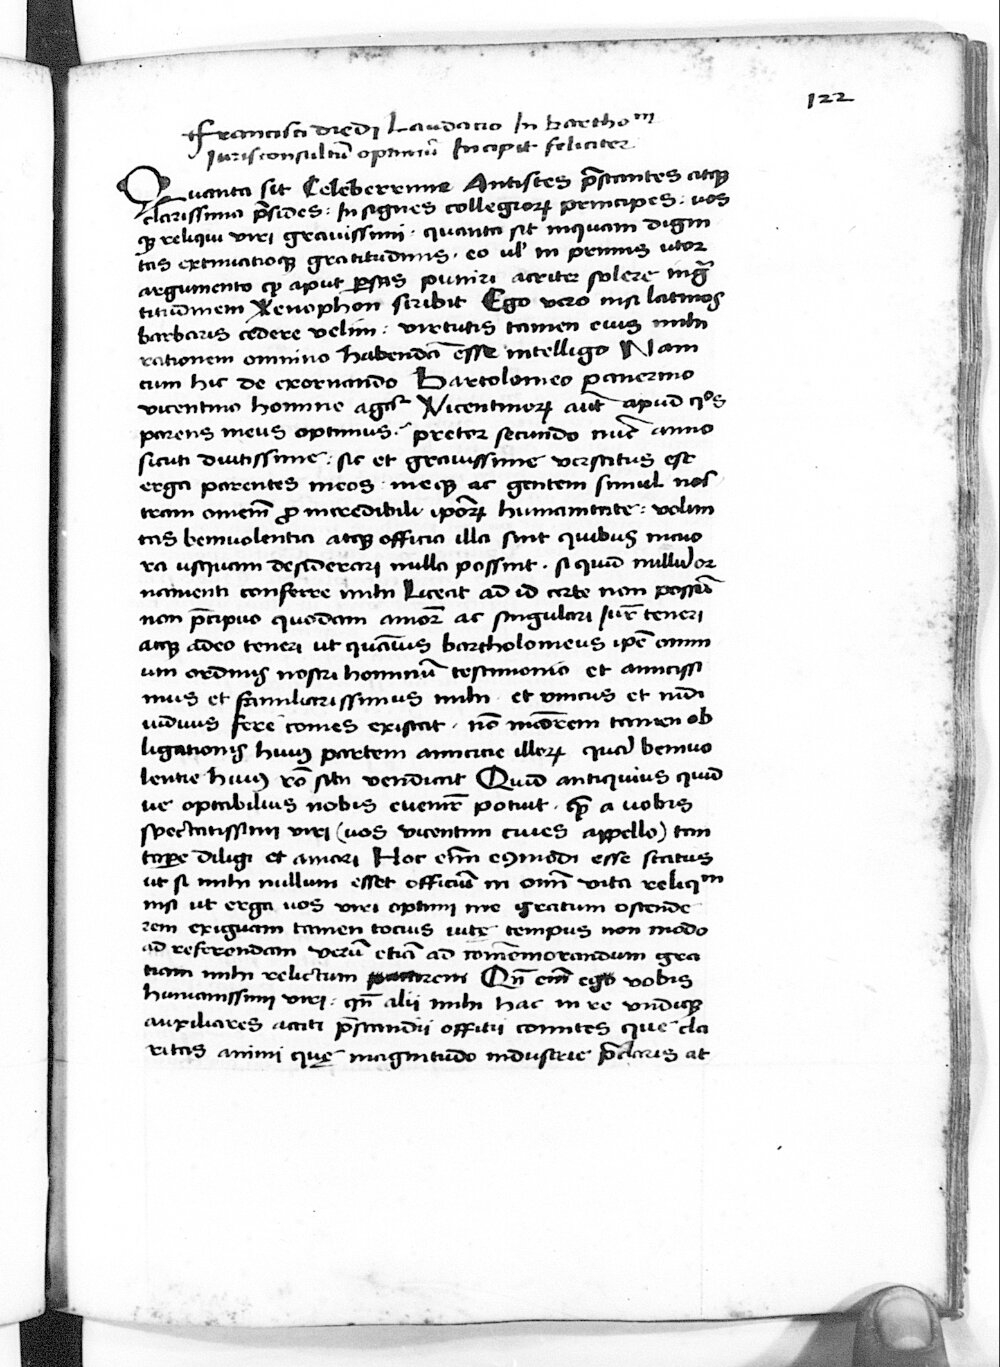 122
Francisci diedi Laudatio In bartho<sup>m</sup>
Iurisconsultū optimū Incipit feliciter
Quanta sit Celeberrime Antistes p̄stantes atqꝫ
clarissimi p̄sides: Insignes collegiorꝫ principes: uos
qꝫ reliqui uiri grauissimi · quanta sit inquam digni
tas extimatioqꝫ gratitudinis · eo ul' in primis utor
argumento qꝫ aput persas puniri acriter solere ingr̄a
titudinem Xenophon scribit Ego uero nisi latinos
barbaris cedere uelim: uirtutis tamen eius mihi
rationem omnino habendā esse intelligo Nam
cum hic de exornando Bartolomeo panermo
uicentino homine agat<sup>r</sup> Vicentinorꝫ aut̄ apud q<sup>o</sup>s
parens meus optimus · pretor secundo nūc anno
sicuti diutissime: sic et grauissime uersatus est
erga parentes meos · meqꝫ ac gentem simul nos
tram omnem p̱ incredibili ip̄orꝫ humanitate: uolun
tas beniuolentia atqꝫ officia illa sint quibus maio
ra usquam desiderari nulla possint · si quid nullius or
namenti conferre mihi Liceat ad id certe non possū
non p̄cipuo quodam amore ac singulari Iure teneri
atqꝫ adeo teneri ut quāuis bartholomeus ip̄e omni
um ordinis nostri hominū testimonio et amicissi
mus et familiarissimus mihi · et unicus et indi
uiduus fere comes existat · nō minorem tamen ob
ligationis huius partem amicicie illorꝫ quā beniuo
lentie huius rō sibi uendicat Quid antiquius quid
ue optabilius nobis euenire potuit · qꝫ a uobis
spectatissimi uiri (uos uicentini ciues appello) tan
topere diligi et amari Hoc eīm eiusmodi esse statuo
ut si mihi nullum esset officiū in omni uita reliqu<sup>m</sup>
nisi ut erga uos uiri optimi me gratum ostende
rem exiguam tamen tocius uitę tempus non modo
ad referendam uerū etiā ad comēmorandum gra
tiam mihi relictum putarem Qn̄ eīm ego uobis
humanissimi uiri: qn̄ alii mihi hac in re undiqꝫ
auxiliares acciti p̄standii offitii comites que cla
ritas animi quę magnitudo industrie p̄claris at